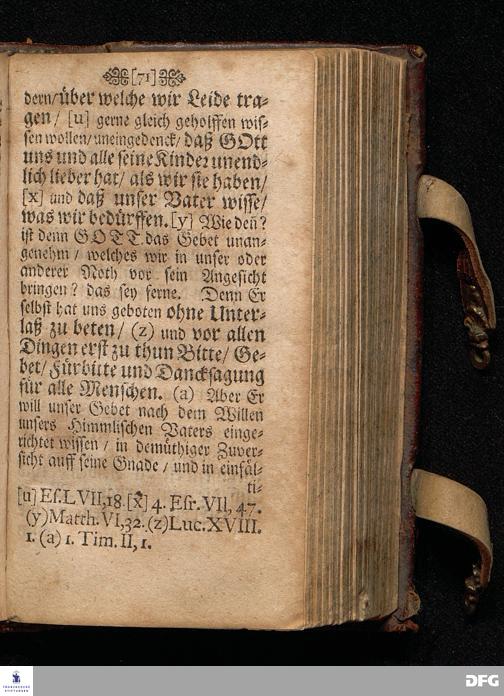 [71]
dern/ über welche wir Leide tra-
gen/ [u] gerne gleich geholffen wis-
sen wollen/ uneingedenck/ daß GOtt
uns und alle seine Kinder unend-
lich lieber hat/ als wir sie haben/
[x] und daß unser Vater wisse/
was wir bedürffen. [y] Wie deñ?
ist denn GOTT das Gebet unan-
genehm/ welches wir in unser oder
anderer Noth vor sein Angesicht
bringen? das sey ferne. Denn Er
selbst hat uns geboten ohne Unter-
laß zu beten/ (z) und vor allen
Dingen erst zu thun Bitte/ Ge-
bet/ Fürbitte und Dancksagung
für alle Menschen. (a) Aber Er
will unser Gebet nach dem Willen
unsers Himmlischen Vaters einge-
richtet wissen/ in demüthiger Zuver-
sicht auff seine Gnade/ und in einfäl-
ti-
[u] Es. LVII, 18. [x] 4. Esr. VII, 47.
(y) Matth. VI, 32. (z) Luc. XVIII.
1. (a) 1. Tim. II, 1.
FRANCKESCHE
STIFTUNGEN
DFG